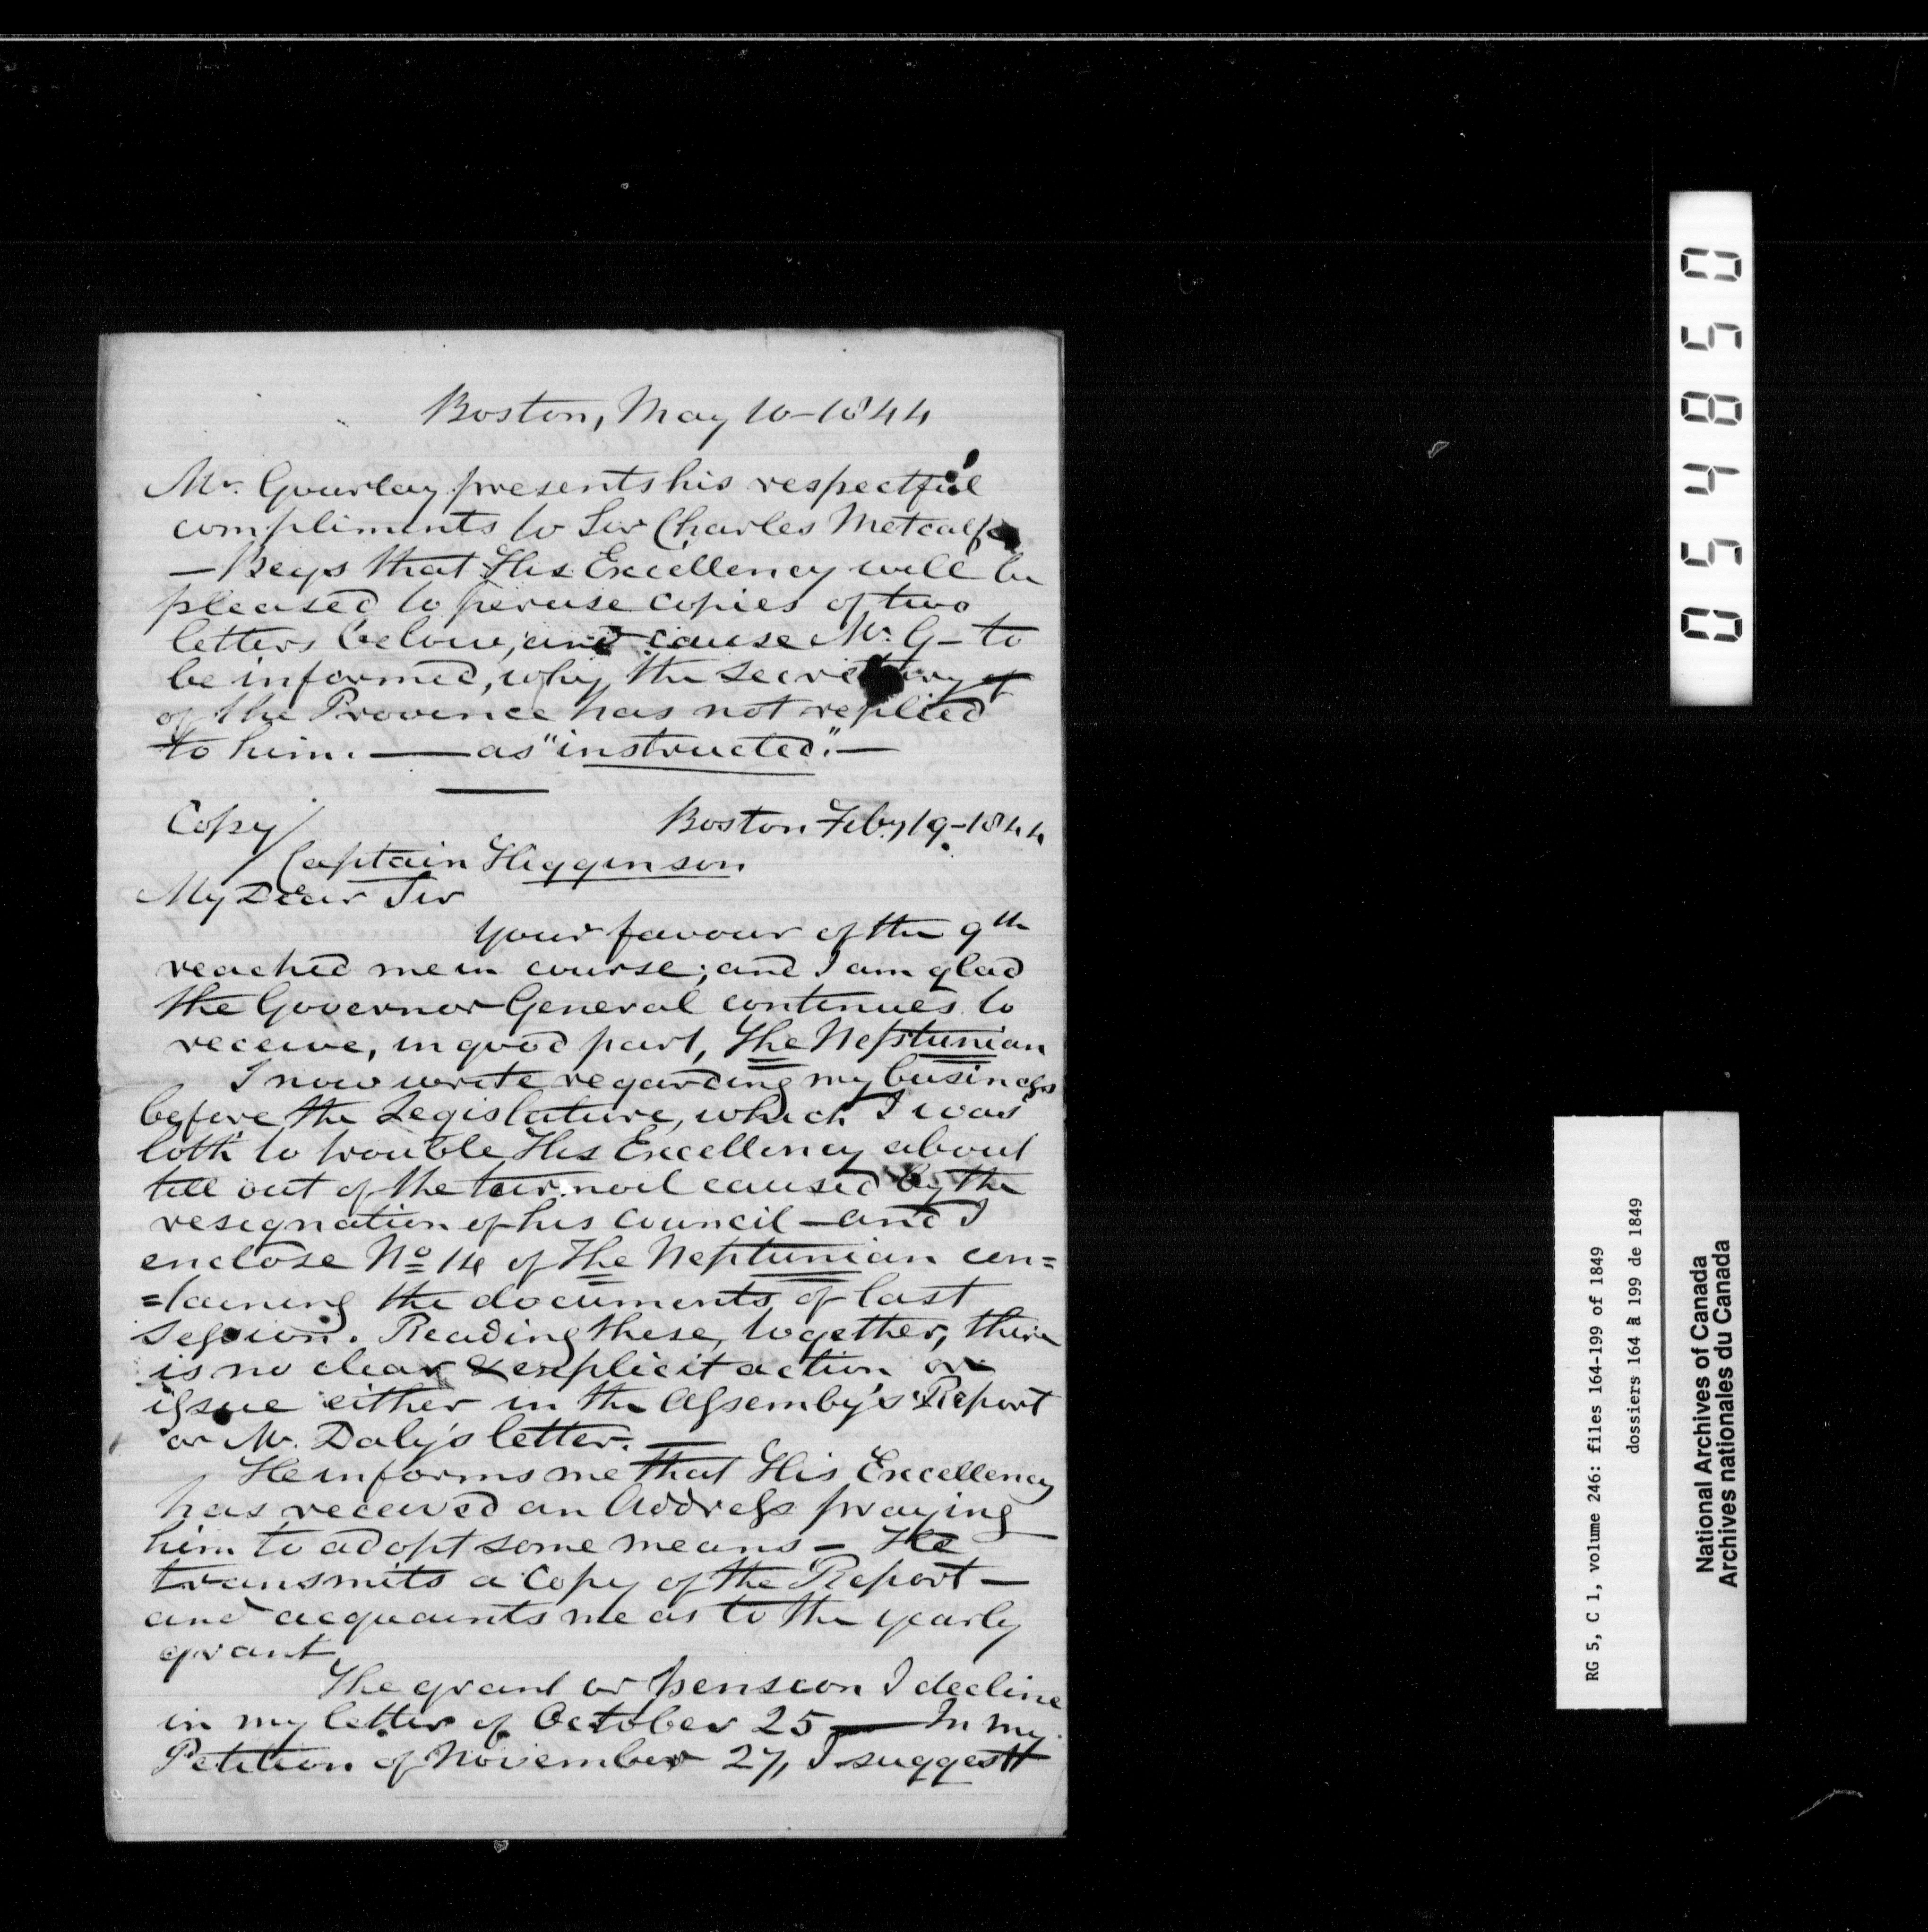 Boston, May 10-1844
Mr. Gourlay presents his respectful
compliments to Sir Charles Metcalfe
— Begs that His Excellency will be
pleased to peruse copies of two
letters below, and cause Mr. G— to
be informed, why the Secretary of
of the Province has not replied
to him. — as "instructed." —
Copy/ Boston Feby 19-1844
Captain Higginson
My Dear Sir
Your favour of the 9th
reached me in course; and I am glad
the Governor General continues to
receive, in good part, The Neptunian
I now write regarding my business
before the Legislature, which I was
loth to trouble His Excellency about
till out of the turmoil caused by the
resignation of his Council — and I
enclose No 14 of The Neptunian con=
=taining the documents of last
Session. Reading these, together, there
is no clear & explicit action or
issue either in the Assemby's Report
or Mr. Daly's letter. —
He informs me that His Excellency
has received an Address praying
him to adopt some means — He
transmits a Copy of the Report —
and acquaints me as to the yearly
grant
The grant or pension I decline
in my letter of October 25 — In my
Petition of November 27, I suggest
054850
RG 5, C 1, volume 246: files 164-199 of 1849
dossiers 164 à 199 de 1849
National Archives of Canada
Archives nationales du Canada